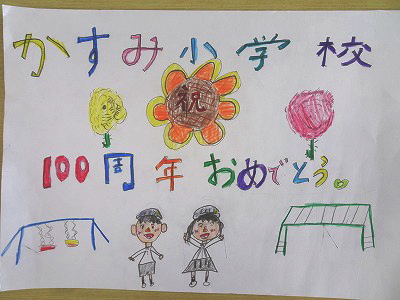 かすみ小学校
祝
100周年おめでとう。